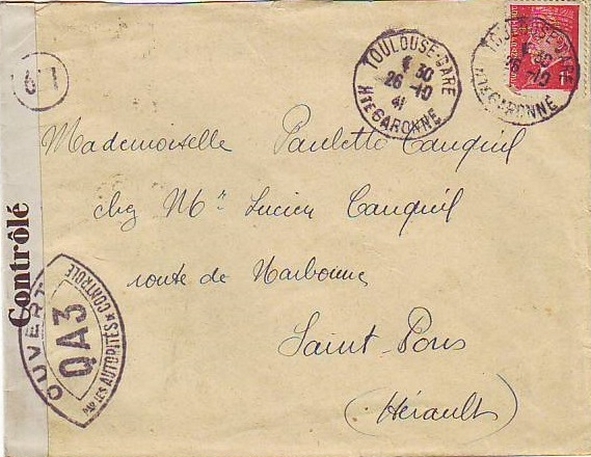 TOULOUSE-GARE
30
26-10
41
HTE GARONNE
30
26-10
GARONNE
Mademoiselle Paulette Cauquil
chez Mr Lucien Cauquil
route de Narbonne
Saint-Pons
(Hérault)
Contrôlé
OUVERT
QA3
PAR LES AUTORITÉS DE CONTRÔLE